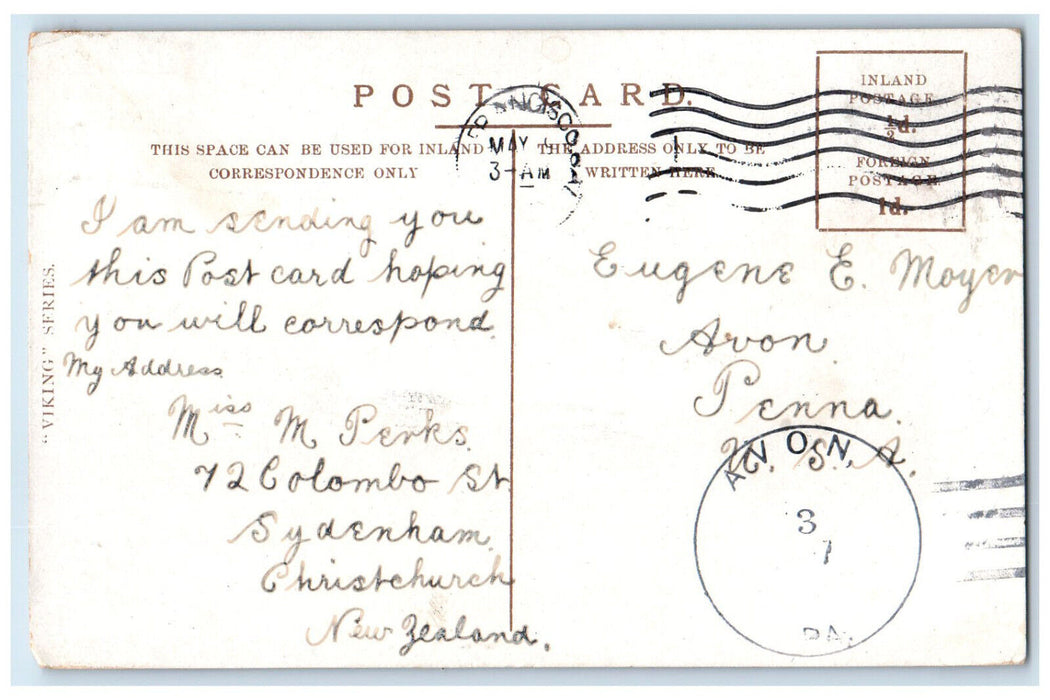 POST CARD.
THIS SPACE CAN BE USED FOR INLAND
CORRESPONDENCE ONLY
THE ADDRESS ONLY TO BE
WRITTEN HERE
INLAND
POSTAGE
½d.
FOREIGN
POSTAGE
1d.
FRANCISCO, CAL
MAY
3-AM
"VIKING" SERIES.
I am sending you
this Post card hoping
you will correspond.
My Address
Miss M Perks.
72 Colombo St.
Sydenham.
Christchurch
New Zealand.
Eugene E. Moyer
Avon.
Penna.
U. S. A.
AVON,
3
7
PA.